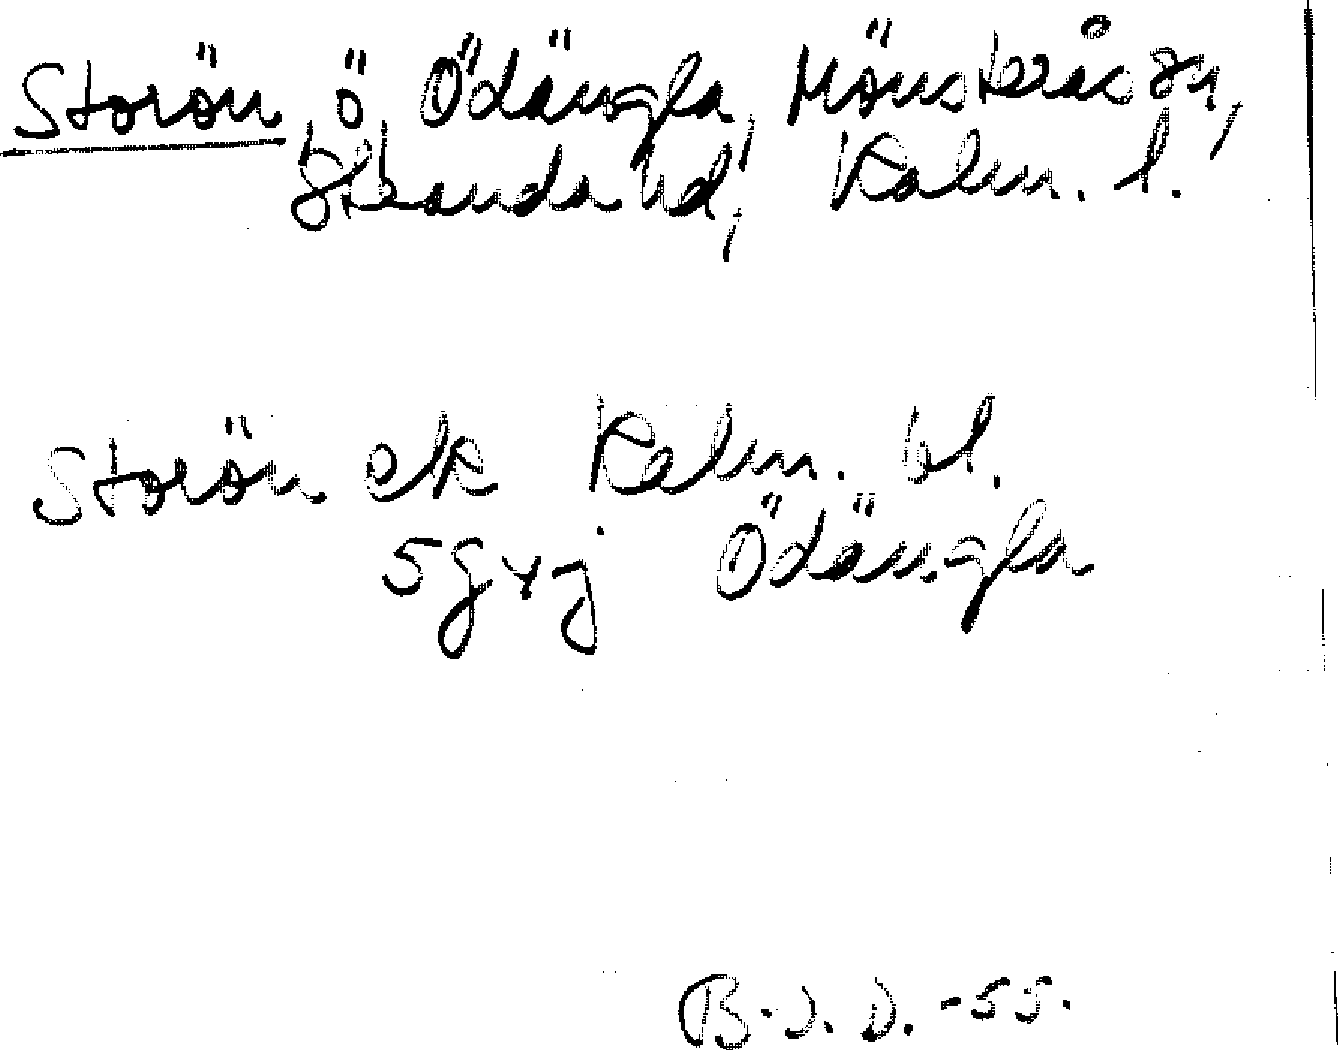 Storön, ö, Ödängla, Mönsterås sn,
Stranda hd, Kalm. l.
Storön ek Kalm. bl.
5g xj Ödängla
B.J.D. -55.